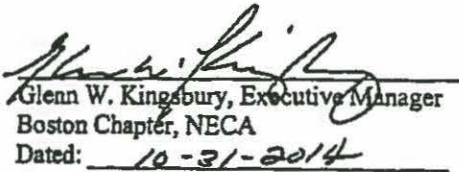 Glenn W. Kingsbury
Glenn W. Kingsbury, Executive Manager
Boston Chapter, NECA
Dated: 10-31-2014